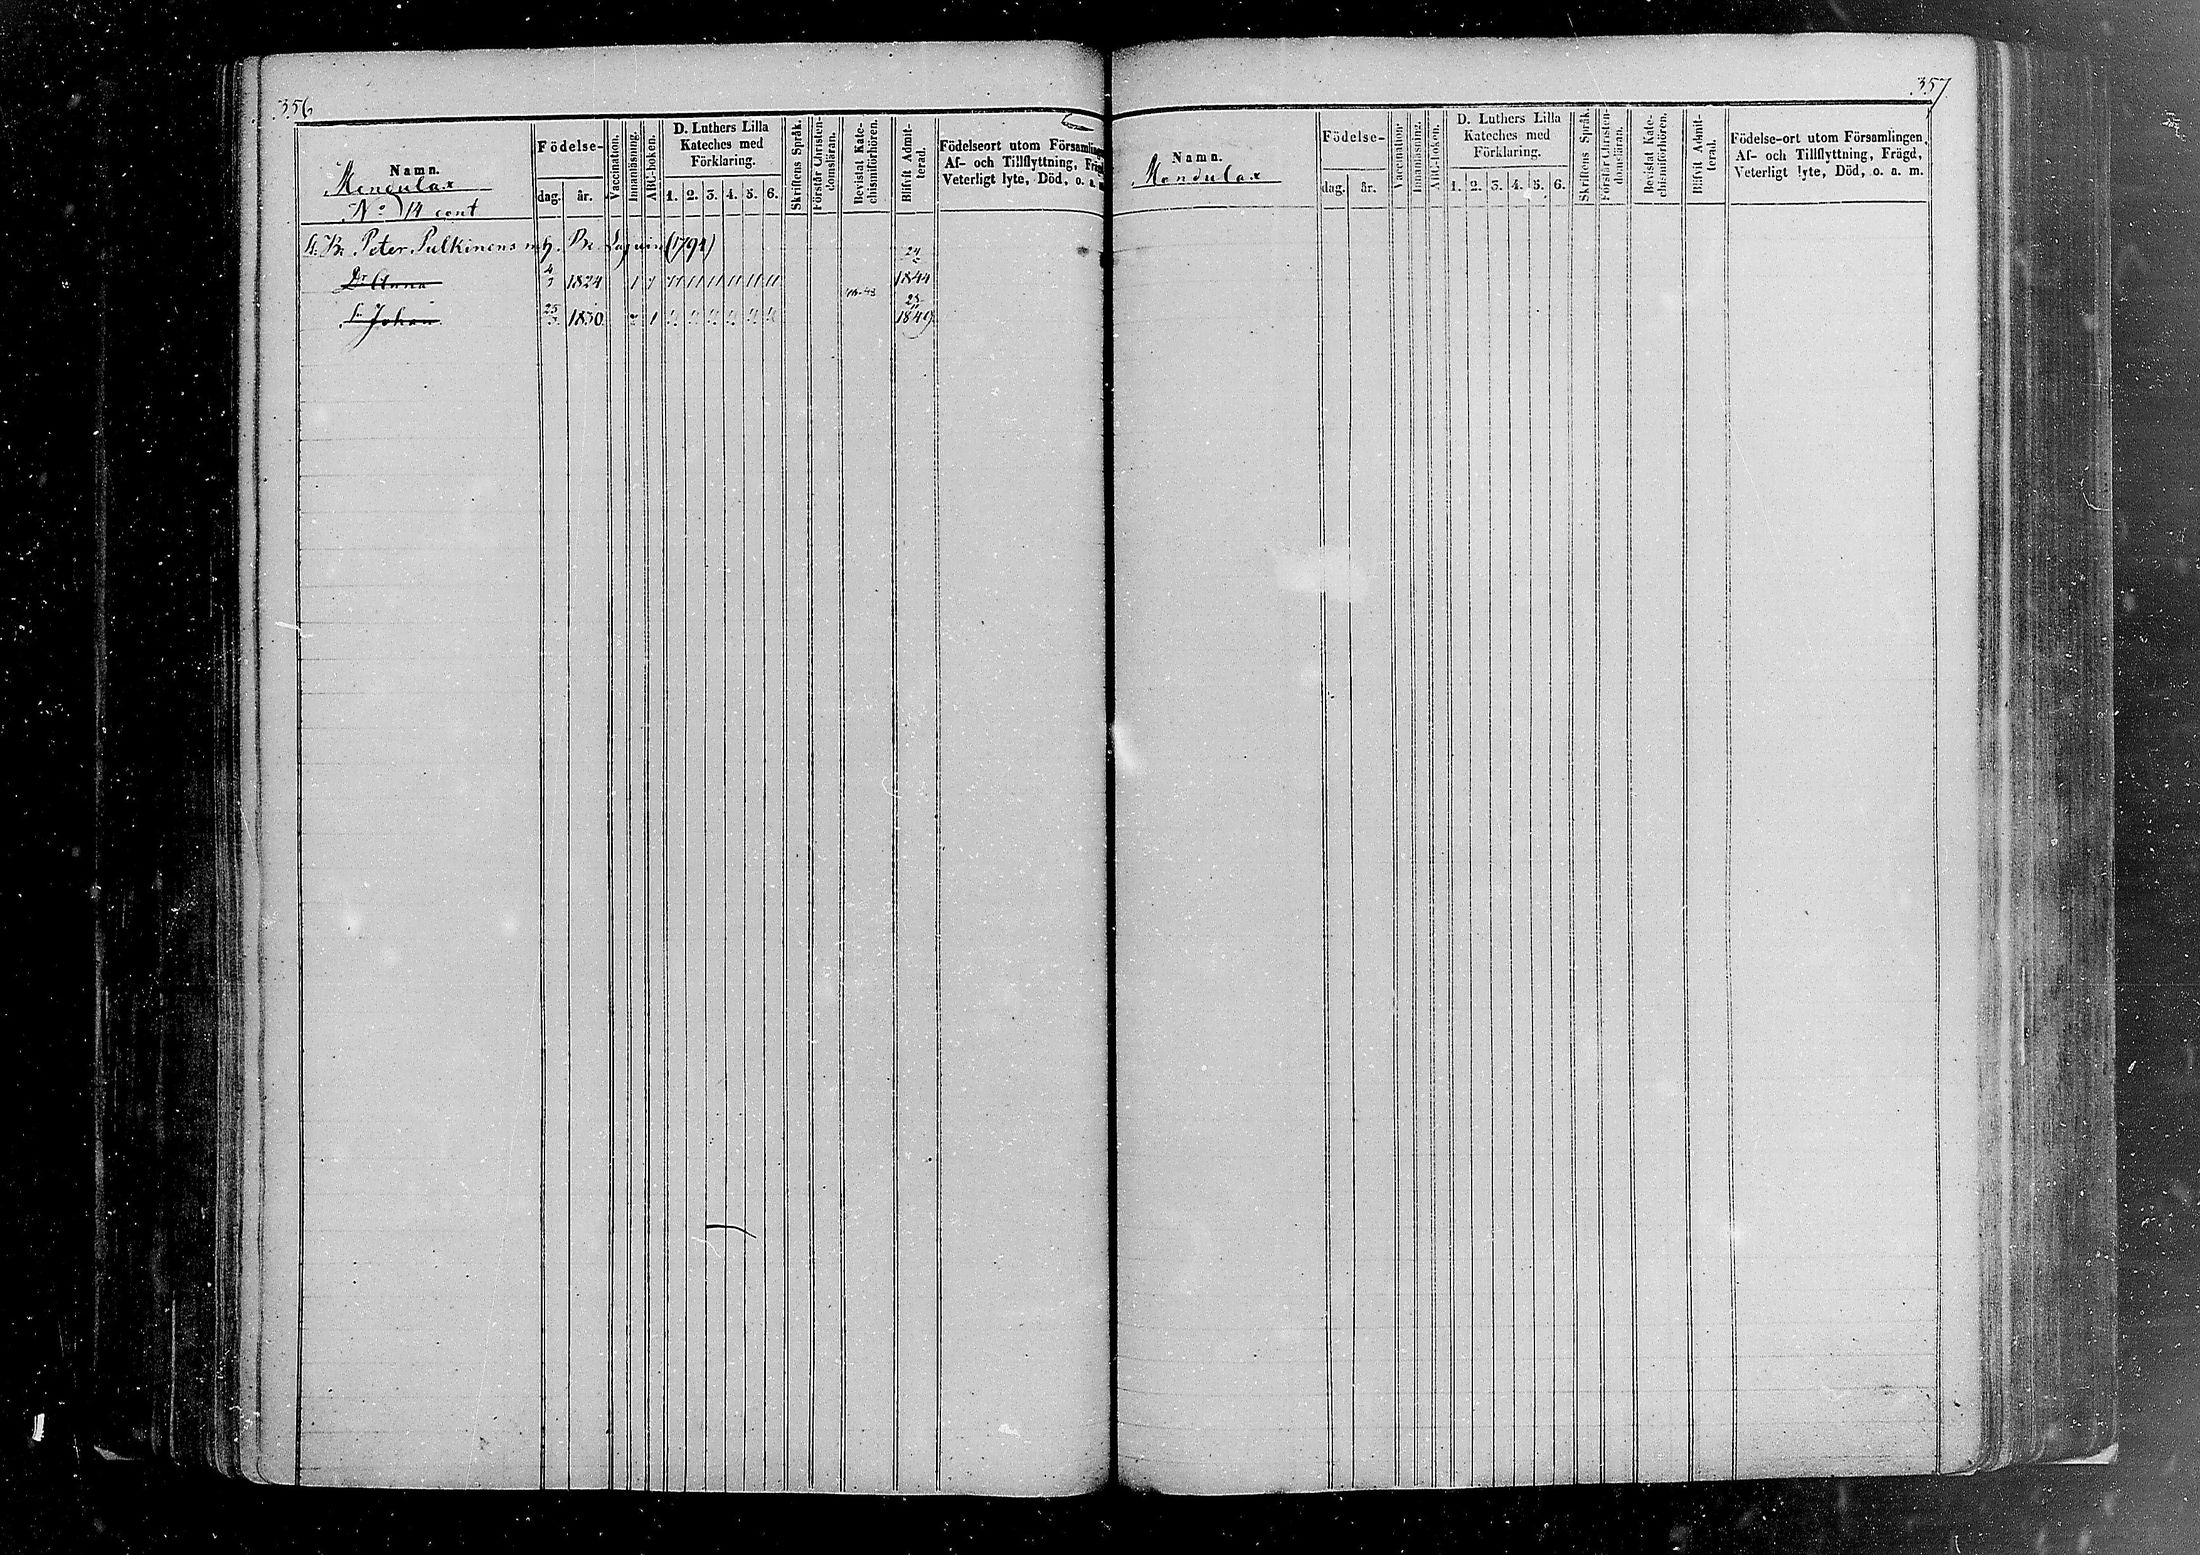 356
Namn.
Mendulax
No 14 cont
Födelse-
dag. år.
Vaccination.
Innanläsning.
ABC-boken.
D. Luthers Lilla
Kateches med
Förklaring.
1. 2. 3. 4. 5. 6.
Skriftens Språk.
Förstår Christen-
domsläran.
Bevistat Kate-
chismiförhören.
Blifvit Admit-
terad.
Födelseort utom Församlingen
Af- och Tillflyttning, Frägd
Veterligt lyte, Död, o. a. m.
Peter Pulkinens (1794)
Dr Anna 4/3 1824 24/ 1844
Sn Johan 25/3 1830 1849
357
Namn.
Mendulax
Födelse-
dag. år.
Vaccination.
Innanläsning.
ABC-boken.
D. Luthers Lilla
Kateches med
Förklaring.
1. 2. 3. 4. 5. 6.
Skriftens Språk.
Förstår Christen-
domsläran.
Bevistat Kate-
chismiförhören.
Blifvit Admit-
terad.
Födelse-ort utom Församlingen,
Af- och Tillflyttning, Frägd,
Veterligt lyte, Död, o. a. m.